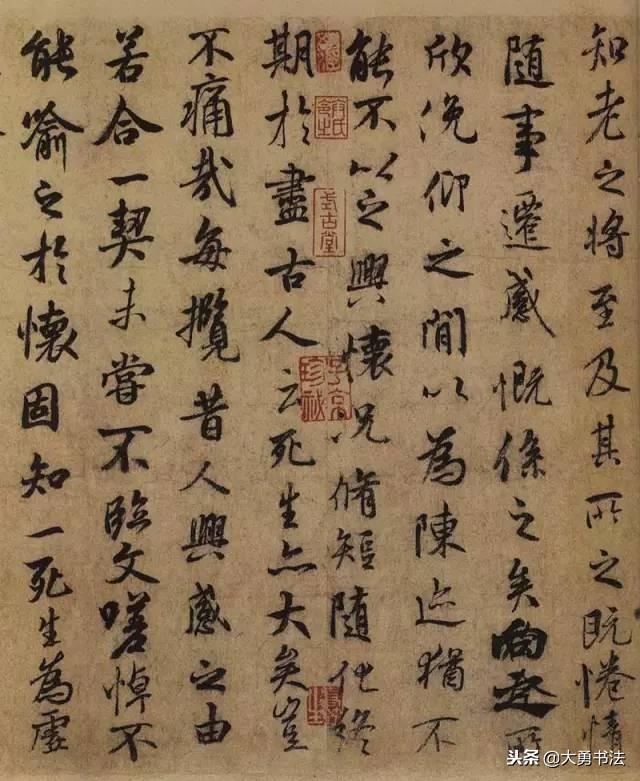 知老之将至及其所之既惓情
随事遷感慨係之矣向之所
欣俛仰之閒以為陳迹猶不
能不以之興懷况脩短随化終
期於盡古人云死生亦大矣豈
不痛哉每攬昔人興感之由
若合一契未甞不臨文嗟悼不
能喻之於懷固知一死生為虛
式古堂
子京珍秘
头条 @大勇书法